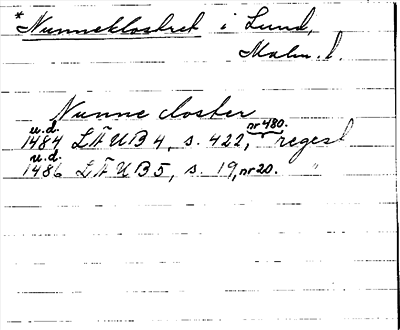 *Nunneklostret i Lund,
Malm. l.
Nunne closter
u.d. nr 480.
1484 LÄUB4, s. 422, regest
u.d.
1486 LÄUB5, s. 19, nr 20. "